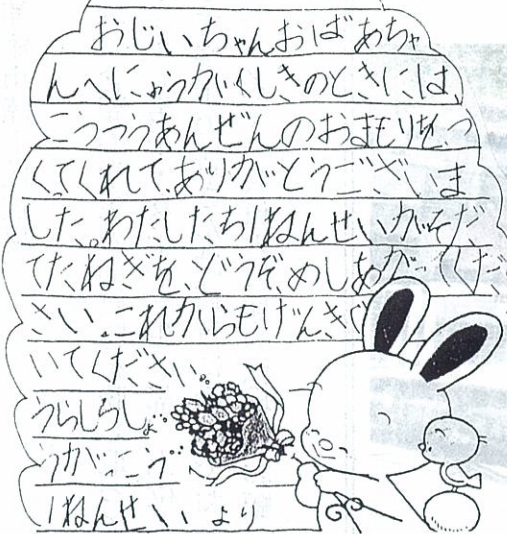 おじいちゃんおばあちゃ
んへにゅうがくしきのときには、
こうつうあんぜんのおまもりを、つ
くてくれて、ありがとうございま
した。わたしたち1ねんせいがそだ
てたねぎを、どうぞ、めしあがってくだ
さい。これからもげんきで
いてください
うらしろしょ
うがっこう
1ねんせいより